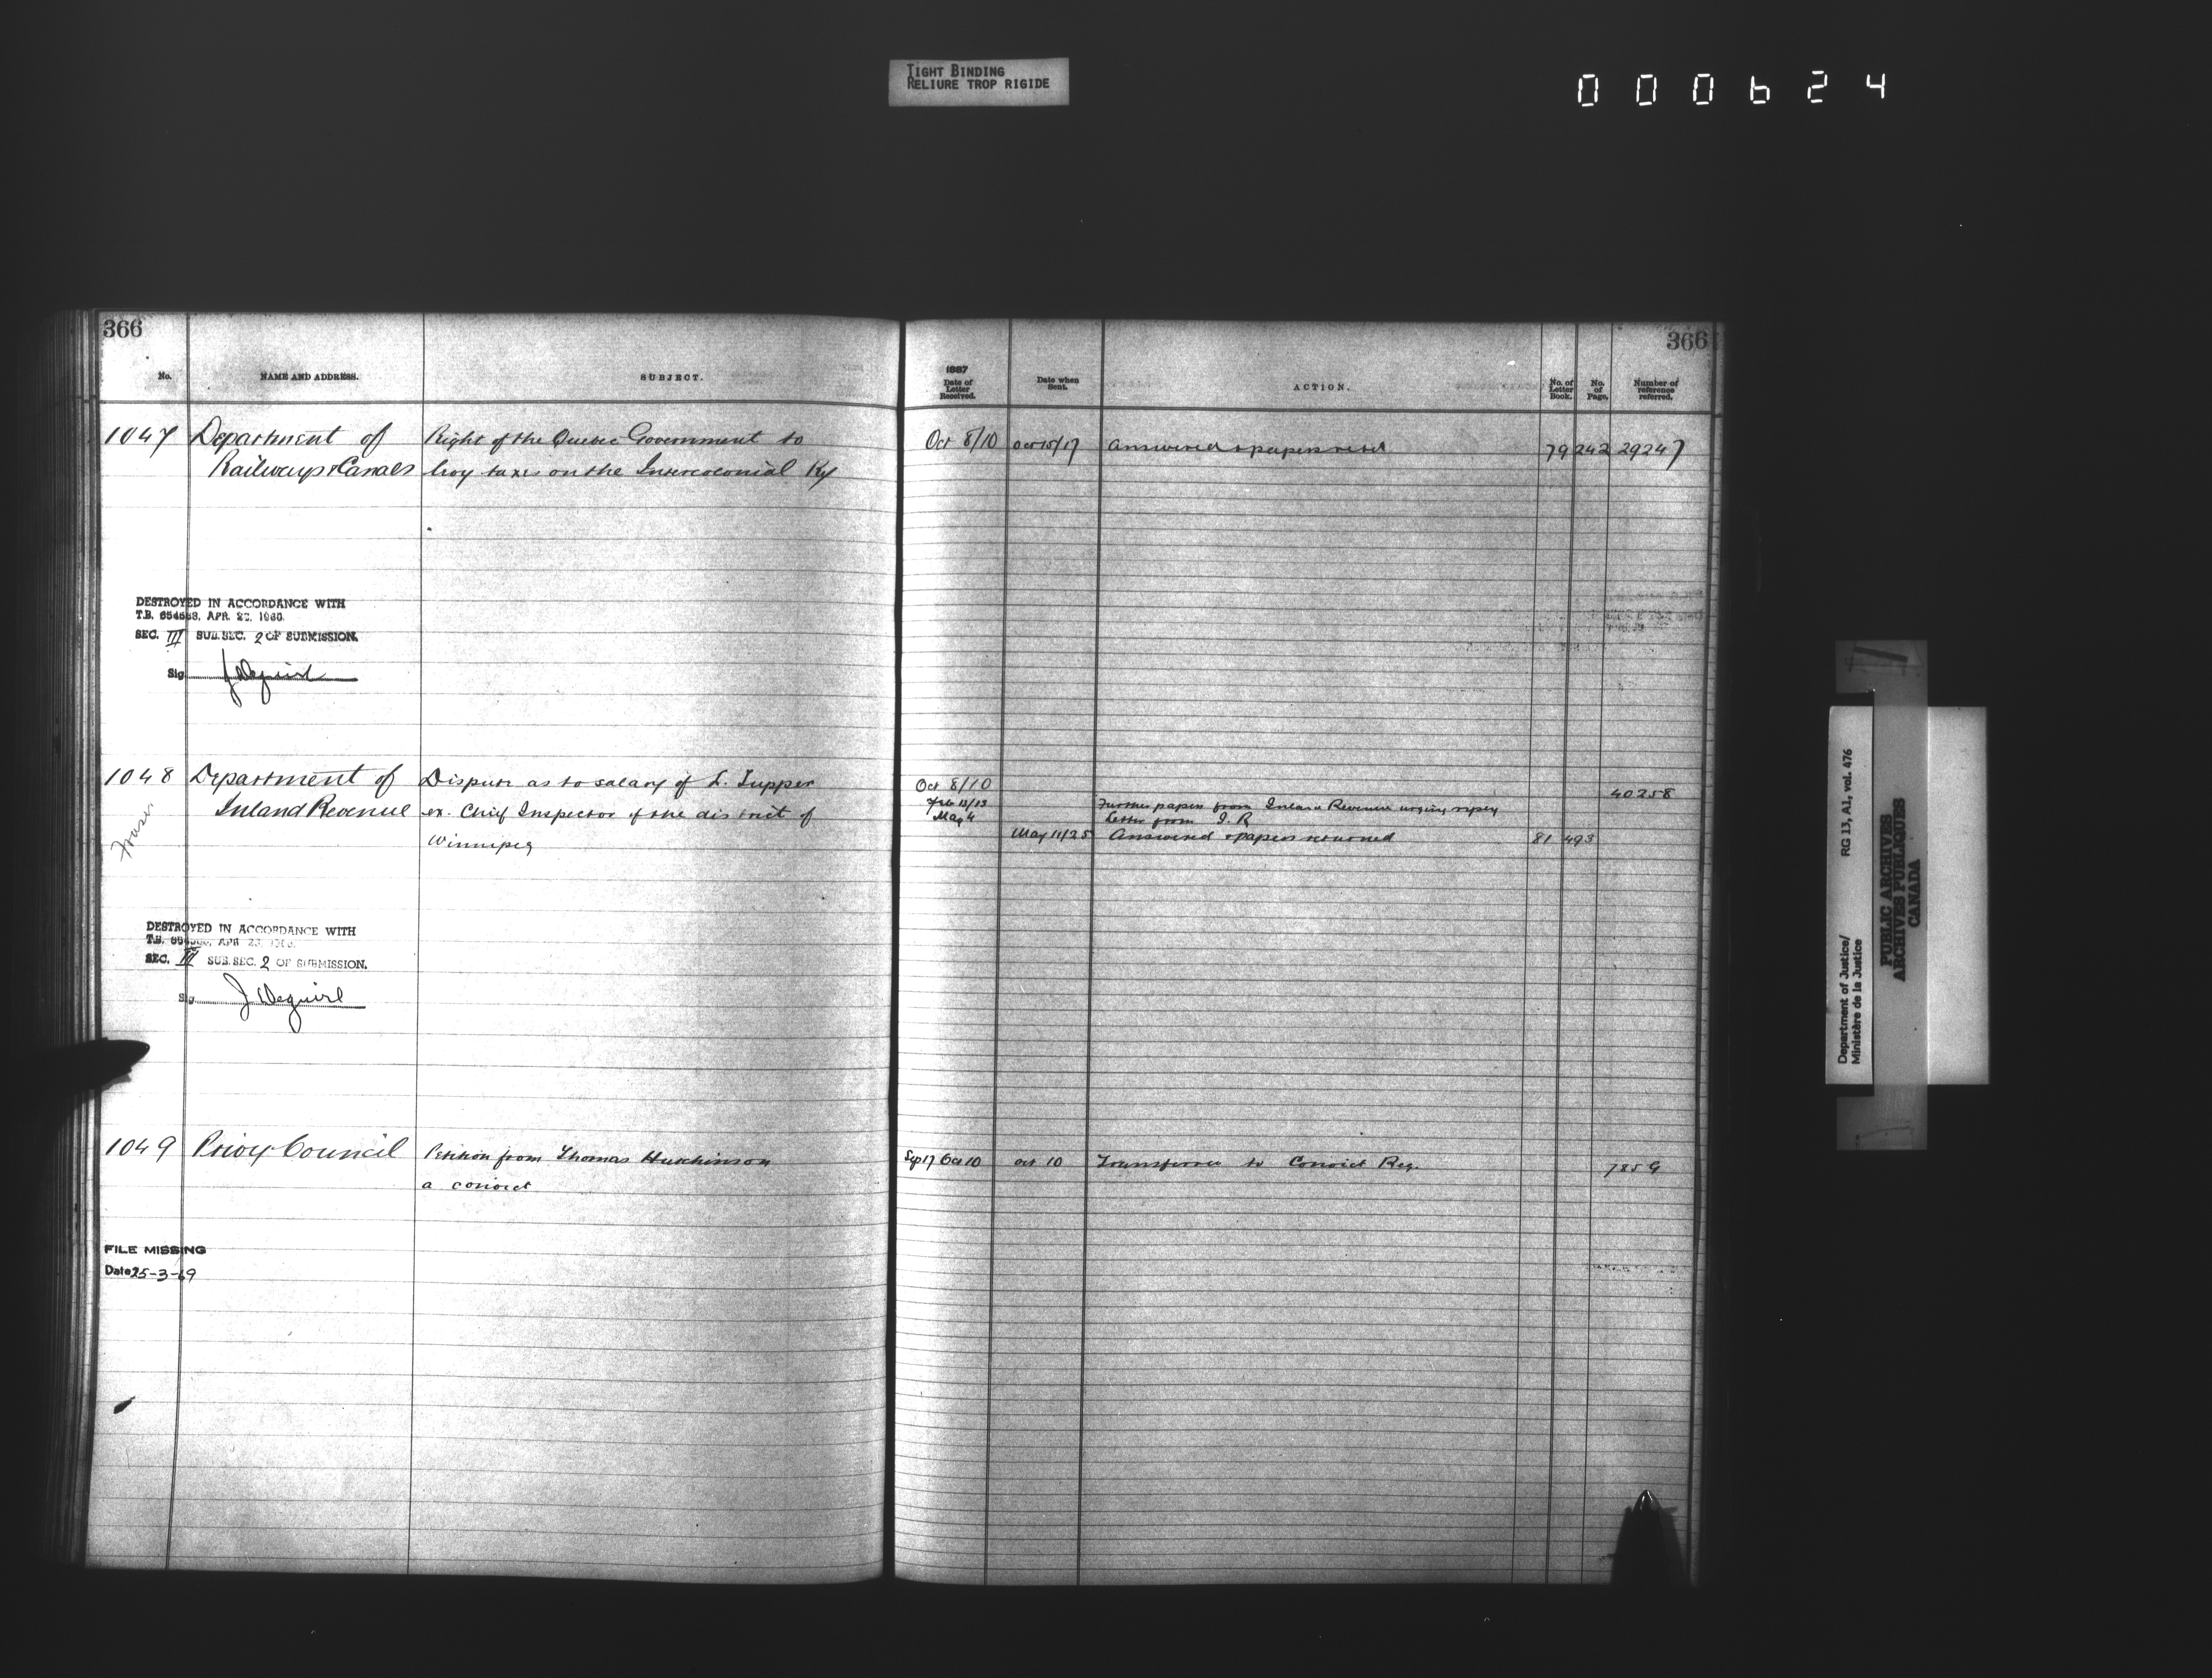 TIGHT BINDING
RELIURE TROP RIGIDE
000624
366
No. NAME AND ADDRESS. SUBJECT.
1047 Department of Right of the Quebec Government to
Railways & Canals levy taxes on the Intercolonial Ry
DESTROYED IN ACCORDANCE WITH
T.B. APR. 1960.
SEC. III SUB. SEC. 2 OF SUBMISSION.
Sig
1048 Department of Dispute as to salary of Tupper
Inland Revenue ex. Chief Inspector of the district of
Winnipeg
Fraser
DESTROYED IN ACCORDANCE WITH
T.B. APR
SEC. III SUB. SEC. 2 OF SUBMISSION.
Sig
1049 Privy Council Petition from Thomas Hutchinson
a convict
FILE MISSING
Date 25-3-69
366
1887
Date of Letter Received. Date when Sent. ACTION. No. of Letter Book. No. of Page. Number of reference referred.
Oct 8/10 Oct 15/17 Answered & papers 79 242 29247
Oct 8/10 40258
Feb 13/13 Further papers from Inland Revenue urging reply
May 4 Letter from I. R
May 11/25 Answered & papers returned 81 493
Sep 17 Oct 10 Oct 10 Transferred to Convict Reg. 7859
Department of Justice/
Ministère de la Justice
RG 13, A1, vol. 476
PUBLIC ARCHIVES
ARCHIVES PUBLIQUES
CANADA